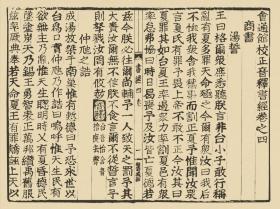 會通館校正音釋書經卷之四
商書
湯誓
王曰格爾眾庶悉聽朕言非台小子敢行稱
亂有夏多罪天命殛之今爾有眾汝曰我后
不恤我眾舍我穡事而割正夏予惟聞汝眾
言夏氏有罪予畏上帝不敢不正今汝其曰
夏罪其如台夏王率遏眾力率割夏邑有眾
率怠弗協曰時日曷喪予及汝皆亡夏德若
茲今朕必往爾尚輔予一人致天之罰予其
大賚汝爾無不信朕不食言爾不從誓言予
則孥戮汝罔有攸赦
仲虺之誥
成湯放桀于南巢惟有慚德曰予恐來世以
台為口實仲虺乃作誥曰嗚呼惟天生民有
欲無主乃亂惟天生聰明時乂有夏昏德民
墜塗炭天乃錫王勇智表正萬邦纘禹舊服
茲率厥典奉若天命夏王有罪矯誣上天以